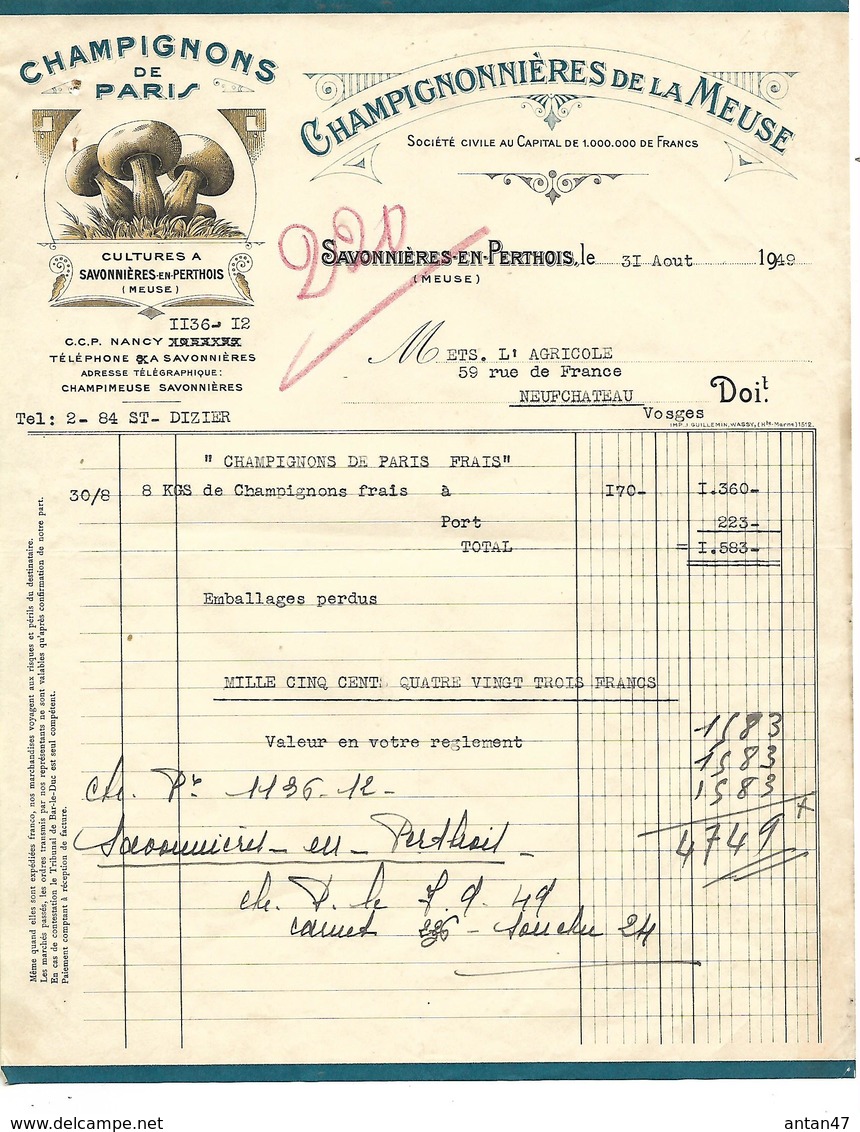 CHAMPIGNONS
DE
PARIS
CHAMPIGNONNIÈRES DE LA MEUSE
SOCIÉTÉ CIVILE AU CAPITAL DE 1.000.000 DE FRANCS
220
CULTURES A
SAVONNIÈRES-EN-PERTHOIS
(MEUSE)
SAVONNIÈRES-EN-PERTHOIS, le 3I Aout 1949
(MEUSE)
II36- I2
C.C.P. NANCY
TÉLÉPHONE A SAVONNIÈRES
ADRESSE TÉLÉGRAPHIQUE:
CHAMPIMEUSE SAVONNIÈRES
Tel: 2- 84 ST- DIZIER
METS. L' AGRICOLE
59 rue de France
NEUFCHATEAU
Vosges
Doit.
IMP. J. GUILLEMIN, WASSY, (Hte-Marne) 1512.
" CHAMPIGNONS DE PARIS FRAIS"
30/8 8 KGS de Champignons frais à I70- I.360-
Port 223-
TOTAL = I.583-
Emballages perdus
MILLE CINQ CENT QUATRE VINGT TROIS FRANCS
Valeur en votre reglement
1583
1583
1583
4749
che. Pr 1136-12-
Savonnières-en-Perthois-
che. P. le 7.9.49
carnet 226 - souche 24
Même quand elles sont expédiées franco, nos marchandises voyagent aux risques et périls du destinataire.
Les marchés passés, les ordres transmis par nos représentants ne sont valables qu'après confirmation de notre part.
En cas de contestation le Tribunal de Bar-le-Duc est seul compétent.
Paiement comptant à réception de facture.
antan47